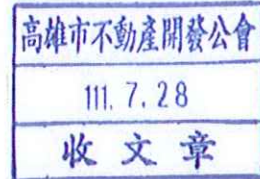 高雄市不動產開發公會
111. 7. 28
收文章